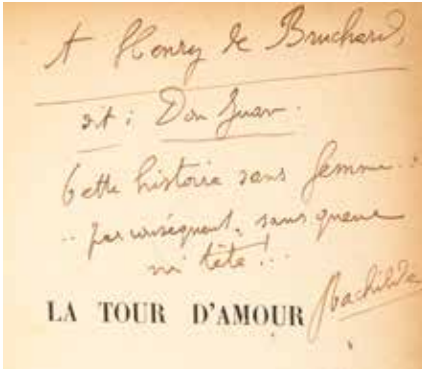 A Henry de Bruchard,
dit : Don Juan.
Cette histoire sans femme...
... par conséquent, sans queue
ni tête !...
LA TOUR D'AMOUR
Rachilde